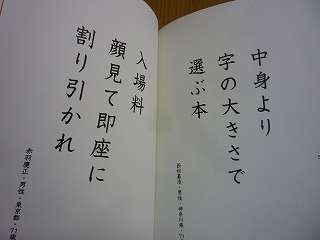 中身より
字の大きさで
選ぶ本
入場料
顔見て即座に
割り引かれ
赤羽慶正・男性・東京都・71歳